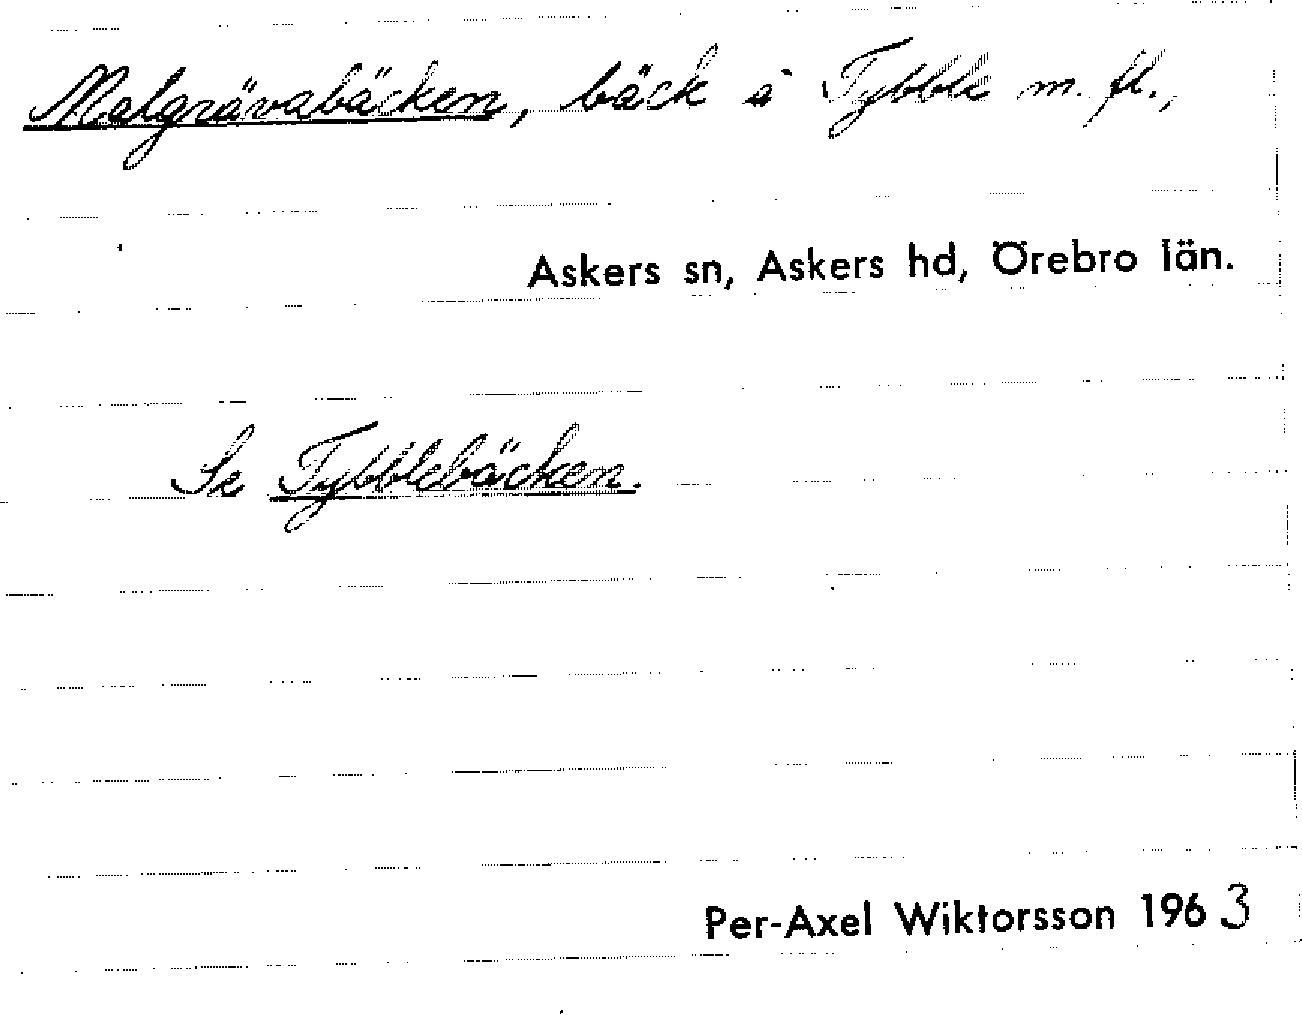 Malgrävabäcken, bäck å Tybble m. fl.,
Askers sn, Askers hd, Örebro län.
Se Tybblebäcken.
Per-Axel Wiktorsson 1963